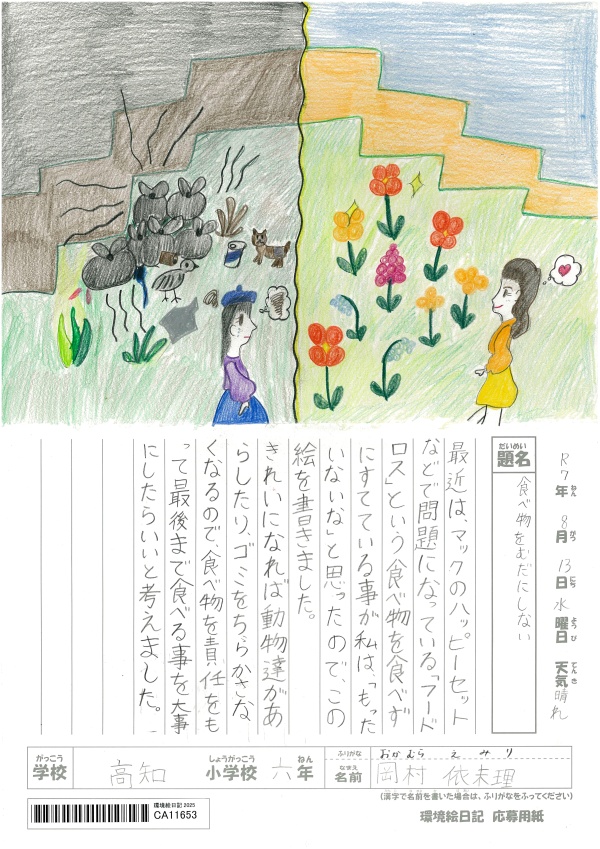 R7年 8月 13日 水曜日 天気 晴れ
ねん がつ にち ようび てんき
だいめい
題名
食べ物をむだにしない
最近は、マックのハッピーセット
などで問題になっている「フード
ロス」という食べ物を食べず
にすてている事が私は、「もった
いないな」と思ったので、この
絵を書きました。
きれいになれば動物達があ
らしたり、ゴミをちらかさな
くなるので、食べ物を責任をも
って最後まで食べる事を大事
にしたらいいと考えました。
がっこう
学校
高知
しょうがっこう
小学校
六
ねん
年
ふりがな
おかむら えみり
なまえ
名前
岡村 依未理
(漢字で名前を書いた場合は、ふりがなをふってください)
環境絵日記 2025
CA11653
環境絵日記 応募用紙